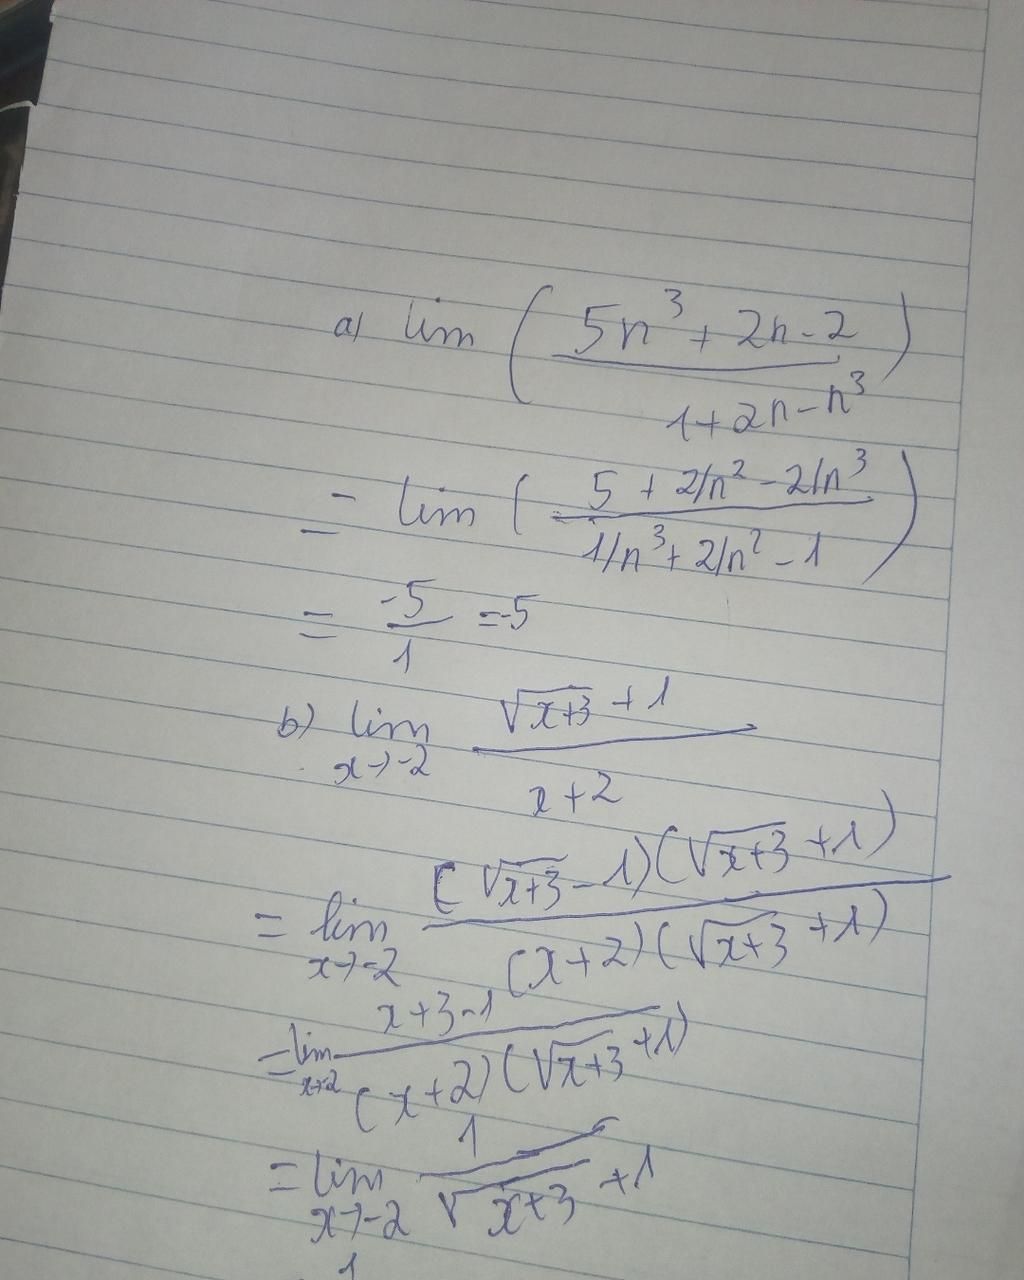 a) lim ( (5n³ + 2n - 2) / (1 + 2n - n³) )
= lim ( (5 + 2/n² - 2/n³) / (1/n³ + 2/n² - 1) )
= -5/1 = -5
b) lim x→-2 (√(x+3) + 1) / (x+2)
= lim x→-2 ((√(x+3) - 1)(√(x+3) + 1)) / ((x+2)(√(x+3) + 1))
= lim x→2 (x+3-1) / ((x+2)(√(x+3) + 1))
= lim x→-2 1 / (√(x+3) + 1)
1